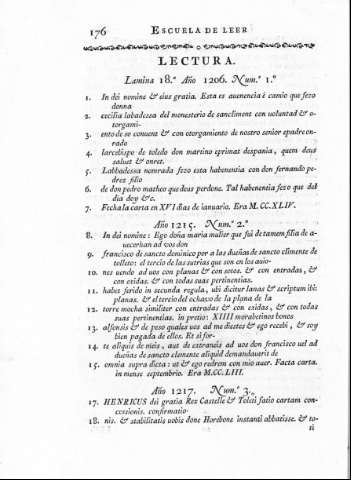 176 ESCUELA DE LEER
LECTURA.
Lamina 18.ª Año 1206. Num.º 1.º
1. In dei nomine & eius gratia. Esta es auenencia é camio que fezo
donna
2. cecilia labadessa del monesterio de sancliment con voluntad & o-
torgami-
3. ento de so conuent & con otorgamiento de nostro senior epadre on-
rado
4. larcebispo de toledo don martino eprimat despania, quem deus
saluet & onret.
5. Labbadessa nomrada fezo esta habenentia con don fernando pe-
drez filio
6. de don pedro matheo que deus perdone. Tal habenentia fezo que del
dia doy &c.
7. Fecha la carta en XVI dias de ianuario. Era M.CC.XLIV.
Año 1215. Num.º 2.º
8. In dei nomine: Ego doña maria muller que fui de tamem filia de a-
uecerhan ad uos don
9. francisco de sancto dominico por a las dueñas de sancto climente de
tolleto: el tercio de las surrias que son en los auio-
10. nes uendo ad uos con planas & con sotos. & con entradas, &
con exidas. & con todas suas pertinentias.
11. habet forido in secunda regula, ubi dicitur lanas & scriptum ibi:
planas. & el tercio del ochauo de la plana de la
12. torre mocha similiter con entradas & con exidas, & con todas
suas pertinentias. in pretio: XIIII morabetinos bonos
13. alfensis & de peso quales uos ad me diestes & ego recebi, & soy
bien pagada de ellos. Et si for-
14. te aliquis de meis, aut de extraneis ad uos don francisco uel ad
dueñas de sancto clemente aliquid demandauerit de
15. omnia supra dicta: ut & ego redrem con mio auer. Facta carta.
in mense septembrio. Era M.CC.LIII.
Año 1217. Num.º 3.
17. HENRICUS dei gratia Rex Castelle & Toleti fatio cartam con-
cessionis. confirmatio-
18. nis. & stabilitatis uobis done Horabone instanti abbatisse. & to-
ti